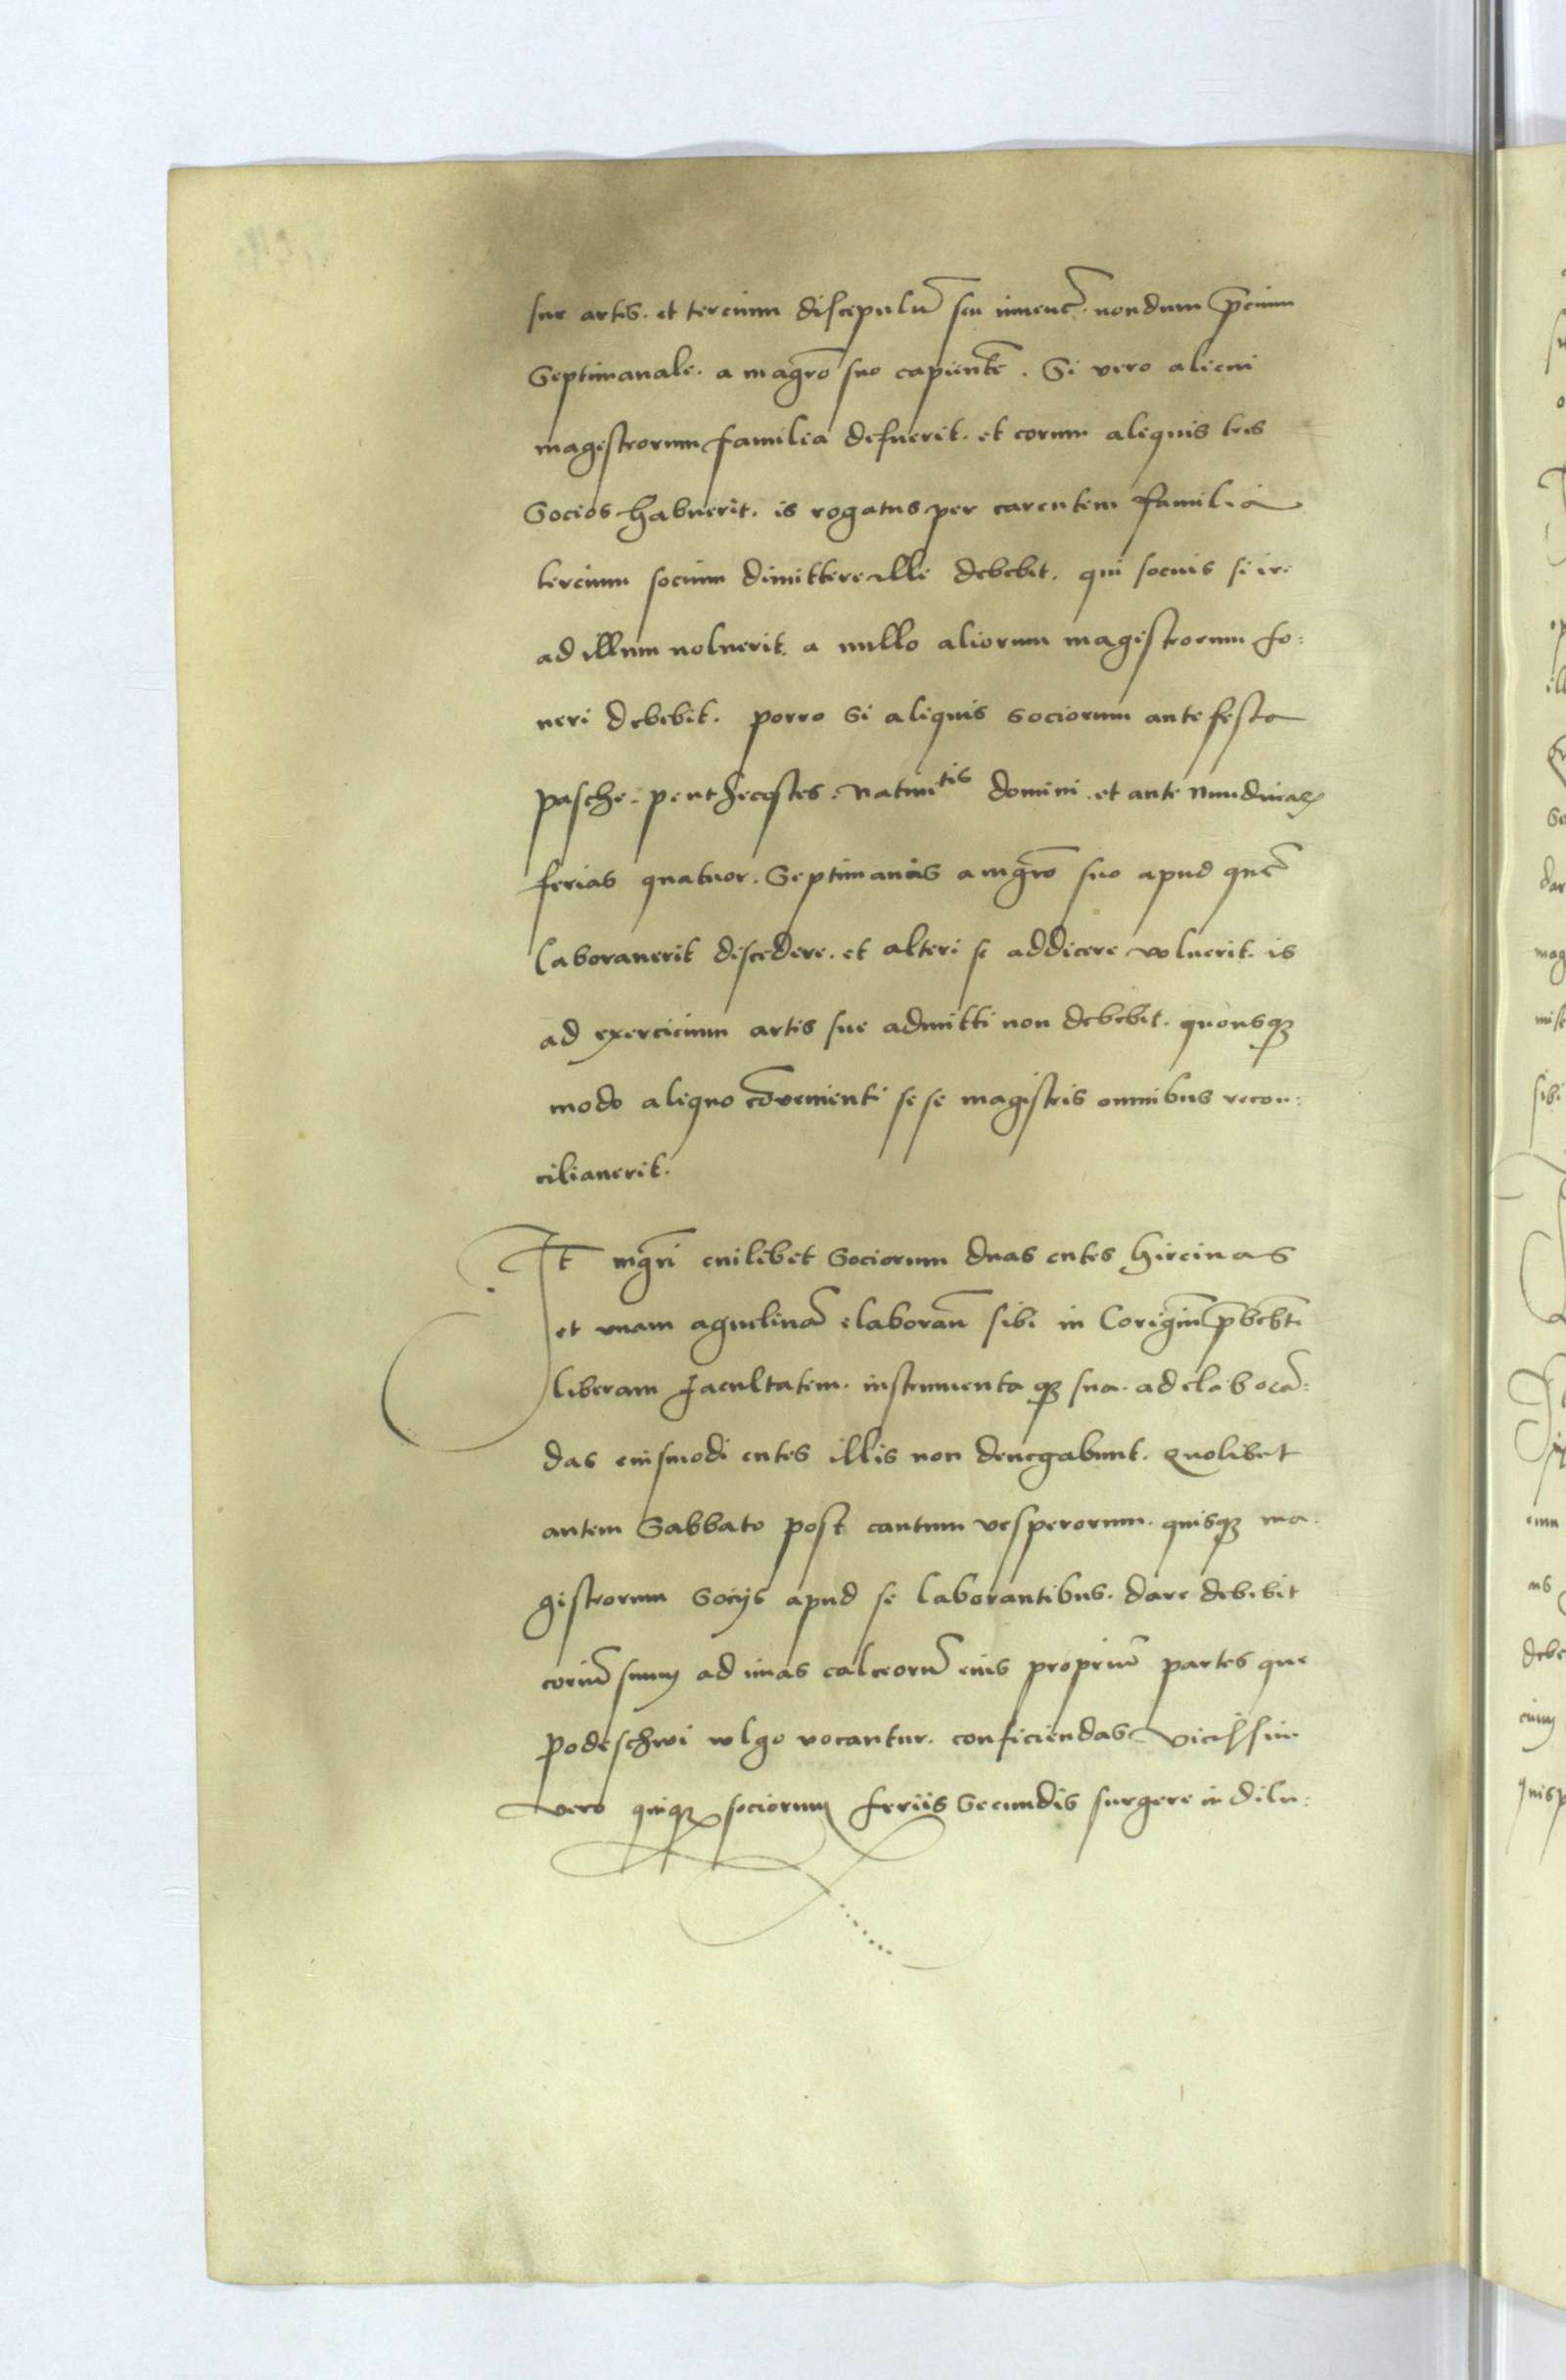 sue artis. et tercium discipulū seu iuuenē. nondum p̄cium
Septimanale. a magr̄o suo capientē. Si vero alicui
magistrorum familia defuerit. et eorum aliquis tres
Socios habuerit. is rogatus per carentem familia
tercium socium dimittere illi debebit. qui socius si ire
ad illum noluerit. a nullo aliorum magistrorum fo:
neri debebit. porro Si aliquis sociorum ante festa
pasche. penthecostes. Natiuitis domini. et ante Nundinales
ferias quatuor. Septimanis a mgr̄o suo apud quē
Laborauerit discedere. et alteri se addicere voluerit. is
ad exercicium artis sue admitti non debebit. quousqꝫ
modo aliquo cōuenienti se se magistris omnibus recon:
ciliauerit.
It̄ mgr̄i cuilibet Sociorum duas cutes hircinas
et vnam agnelinā elaborañ sibi in Corigiā p̄bebt̄
liberam facultatem. instrumenta qꝫ sua. ad elaborā:
das eiusmodi cutes illis non denegabunt. Quolibet
autem Sabbato post cantum vesperorum. quisqꝫ ma.
gistrorum Socijs apud se laborantibus. dare debebit
coriū suum ad imas calceorū eius propriū partes que
podeschwi wlgo vocantur. conficiendas Vicissim
vero quisqꝫ sociorum feriis Secundis surgere in dilu: